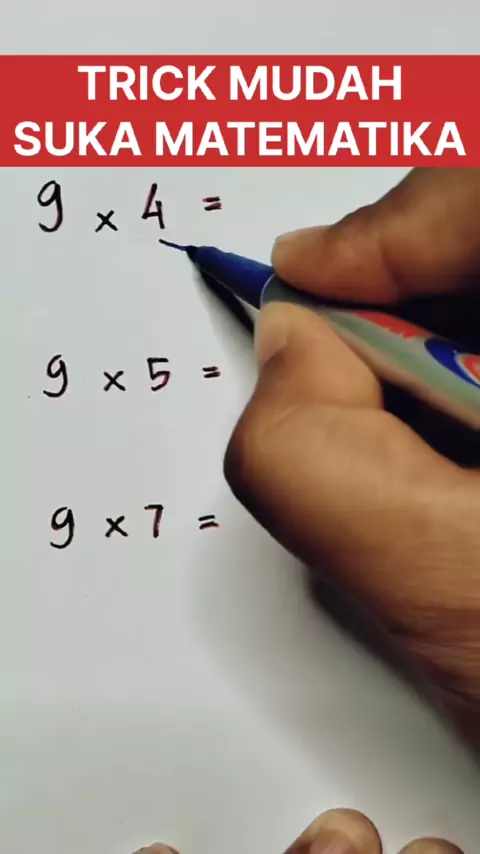 TRICK MUDAH
SUKA MATEMATIKA
9 x 4 =
9 x 5 =
9 x 7 =